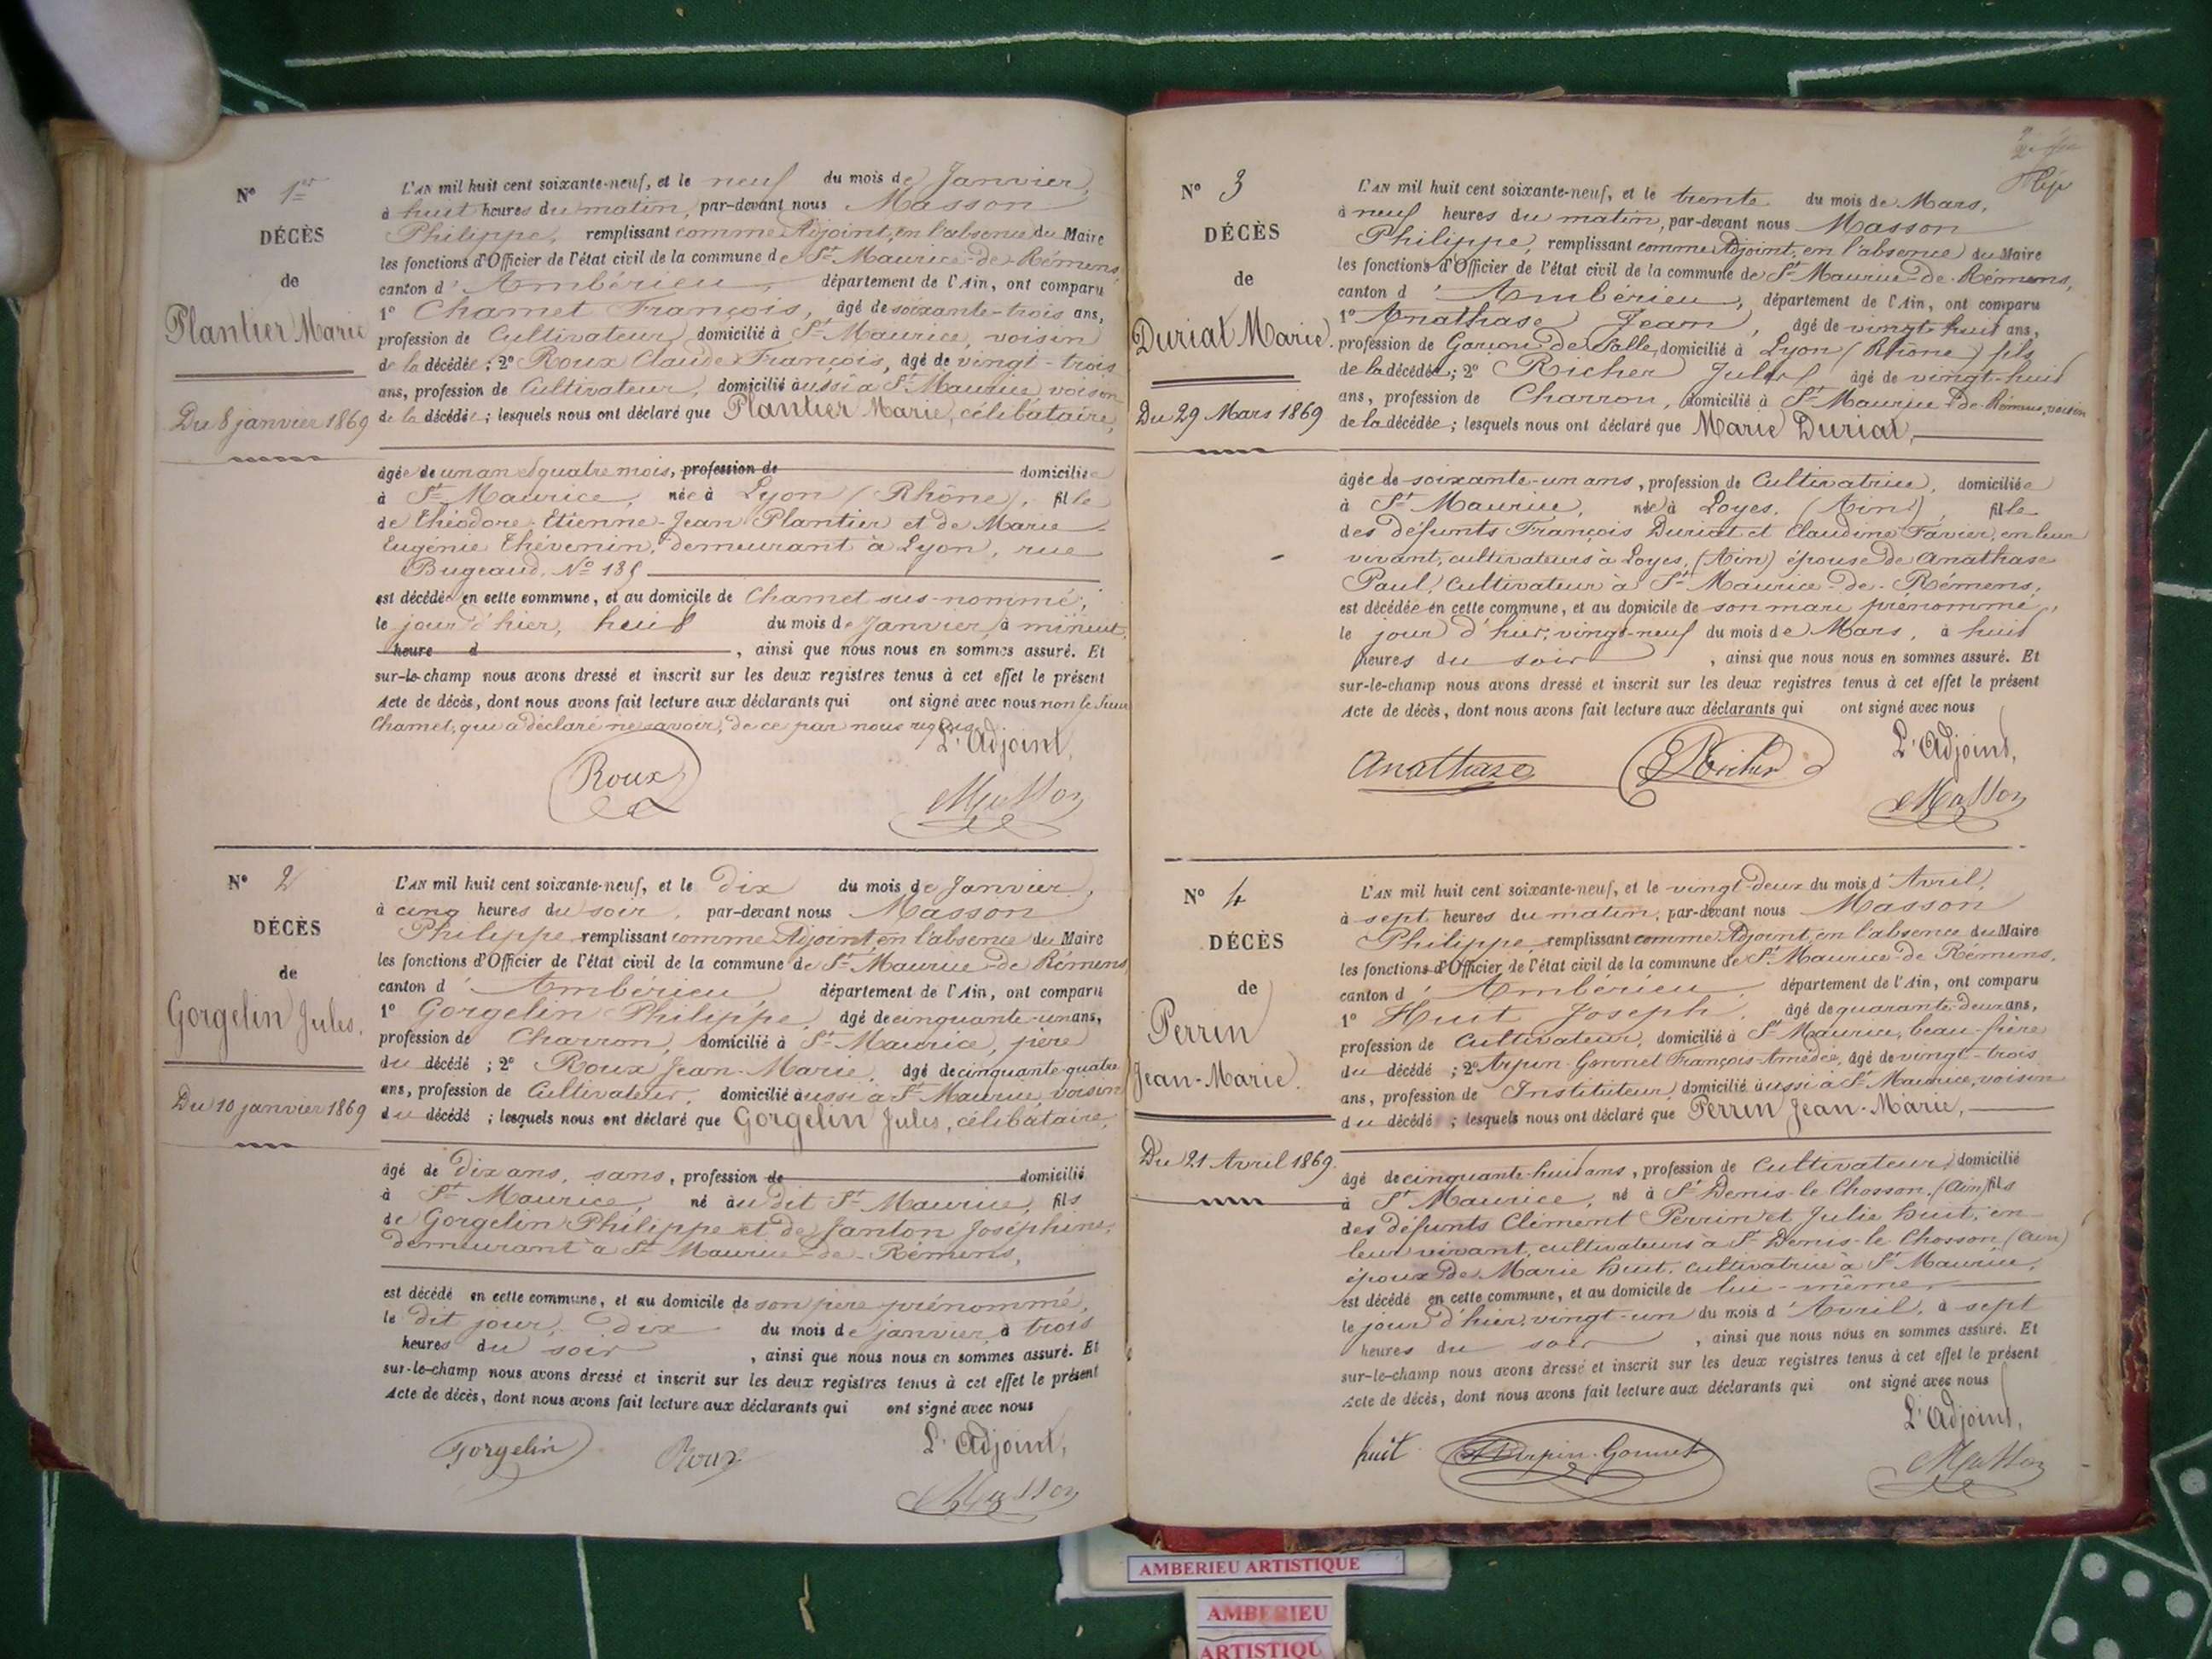 N° 1er
DÉCÈS
de
Plantier Marie
Du 8 janvier 1869
L'AN mil huit cent soixante-neuf, et le neuf du mois de Janvier,
à huit heures du matin, par-devant nous Masson
Philippe, remplissant comme Adjoint, en l'absence du Maire
les fonctions d'Officier de l'état civil de la commune de St Maurice-de-Rémens
canton d'Ambérieu, département de l'Ain, ont comparu
1° Chamet François, âgé de soixante-trois ans,
profession de Cultivateur, domicilié à St Maurice, voisin
de la décédée ; 2° Roux Claude François, âgé de vingt-trois
ans, profession de Cultivateur, domicilié aussi à St Maurice, voisin
de la décédée ; lesquels nous ont déclaré que Plantier Marie, célibataire,
âgée de un an et quatre mois, profession de domiciliée
à St Maurice, née à Lyon (Rhône), fille
de Théodore-Etienne-Jean Plantier et de Marie-
Eugénie Thévenin, demeurant à Lyon, rue
Bugeaud, N°
est décédée en cette commune, et au domicile de Chamet sus-nommé,
le jour d'hier, huit du mois de Janvier, à minuit,
heure d , ainsi que nous nous en sommes assuré. Et
sur-le-champ nous avons dressé et inscrit sur les deux registres tenus à cet effet le présent
Acte de décès, dont nous avons fait lecture aux déclarants qui ont signé avec nous non le sieur
Chamet, qui a déclaré ne savoir, de ce par nous requis.
L'Adjoint,
Roux
Masson
N° 2
DÉCÈS
de
Gorgelin Jules.
Du 10 janvier 1869
L'AN mil huit cent soixante-neuf, et le dix du mois de Janvier,
à cinq heures du soir, par-devant nous Masson
Philippe remplissant comme Adjoint en l'absence du Maire
les fonctions d'Officier de l'état civil de la commune de St Maurice-de Rémens
canton d'Ambérieu département de l'Ain, ont comparu
1° Gorgelin Philippe, âgé de cinquante-un ans,
profession de Charron, domicilié à St Maurice, père
du décédé ; 2° Roux Jean-Marie, âgé de cinquante-quatre
ans, profession de Cultivateur, domicilié aussi à St Maurice, voisin
du décédé ; lesquels nous ont déclaré que Gorgelin Jules, célibataire,
âgé de dix ans, sans, profession de domicilié
à St Maurice, né au dit St Maurice, fils
de Gorgelin Philippe et de Janton Joséphine,
demeurant à St Maurice-de-Rémens,
est décédé en cette commune, et au domicile de son père prénommé,
le dit jour, dix du mois de janvier à trois
heures du soir , ainsi que nous nous en sommes assuré. Et
sur-le-champ nous avons dressé et inscrit sur les deux registres tenus à cet effet le présent
Acte de décès, dont nous avons fait lecture aux déclarants qui ont signé avec nous
L'Adjoint,
Gorgelin Roux
Masson
N° 3
DÉCÈS
de
Duriat Marie.
Du 29 Mars 1869
L'AN mil huit cent soixante-neuf, et le trente du mois de Mars,
à neuf heures du matin, par-devant nous Masson
Philippe, remplissant comme Adjoint, en l'absence du Maire
les fonctions d'Officier de l'état civil de la commune de St Maurice-de-Rémens,
canton d'Ambérieu, département de l'Ain, ont comparu
1° Anathase Jean, âgé de vingt-huit ans,
profession de Garçon de Salle, domicilié à Lyon (Rhône) fils
de la décédée ; 2° Richer Jules âgé de vingt-huit
ans, profession de Charron, domicilié à St Maurice-de-Rémens, voisin
de la décédée ; lesquels nous ont déclaré que Marie Duriat,
âgée de soixante-un ans, profession de Cultivatrice, domiciliée
à St Maurice, née à Loyes, (Ain), fille
des défunts François Duriat et Claudine Favier, en leur
vivant, cultivateurs à Loyes, (Ain) épouse de Anathase
Paul, Cultivateur à St Maurice-de-Rémens,
est décédée en cette commune, et au domicile de son mari prénommé,
le jour d'hier, vingt-neuf du mois de Mars, à huit
heures du soir , ainsi que nous nous en sommes assuré. Et
sur-le-champ nous avons dressé et inscrit sur les deux registres tenus à cet effet le présent
Acte de décès, dont nous avons fait lecture aux déclarants qui ont signé avec nous
L'Adjoint,
Anathaze Richer
Masson
N° 4
DÉCÈS
de
Perrin
Jean-Marie.
Du 21 Avril 1869.
L'AN mil huit cent soixante-neuf, et le vingt-deux du mois d'Avril,
à sept heures du matin, par-devant nous Masson
Philippe remplissant comme Adjoint, en l'absence du Maire
les fonctions d'Officier de l'état civil de la commune de St Maurice-de Rémens,
canton d'Ambérieu, département de l'Ain, ont comparu
1° Huit Joseph, âgé de quarante-deux ans,
profession de Cultivateur, domicilié à St Maurice, beau-frère
du décédé ; 2° Arpin-Gonnet François-Amédée, âgé de vingt-trois
ans, profession de Instituteur, domicilié aussi à St Maurice, voisin
du décédé ; lesquels nous ont déclaré que Perrin Jean-Marie,
âgé de cinquante-huit ans, profession de Cultivateur, domicilié
à St Maurice, né à St Denis-le-Chosson, (Ain) fils
des défunts Clément Perrin et Julie Huit, en
leur vivant, cultivateurs à St Denis-le-Chosson, (Ain)
époux de Marie Huit, cultivatrice à St Maurice,
est décédé en cette commune, et au domicile de lui-même,
le jour d'hier, vingt-un du mois d'Avril, à sept
heures du soir , ainsi que nous nous en sommes assuré. Et
sur-le-champ nous avons dressé et inscrit sur les deux registres tenus à cet effet le présent
Acte de décès, dont nous avons fait lecture aux déclarants qui ont signé avec nous
L'Adjoint,
huit Arpin-Gonnet
Masson
AMBERIEU ARTISTIQUE
AMBERIEU
ARTISTIQU